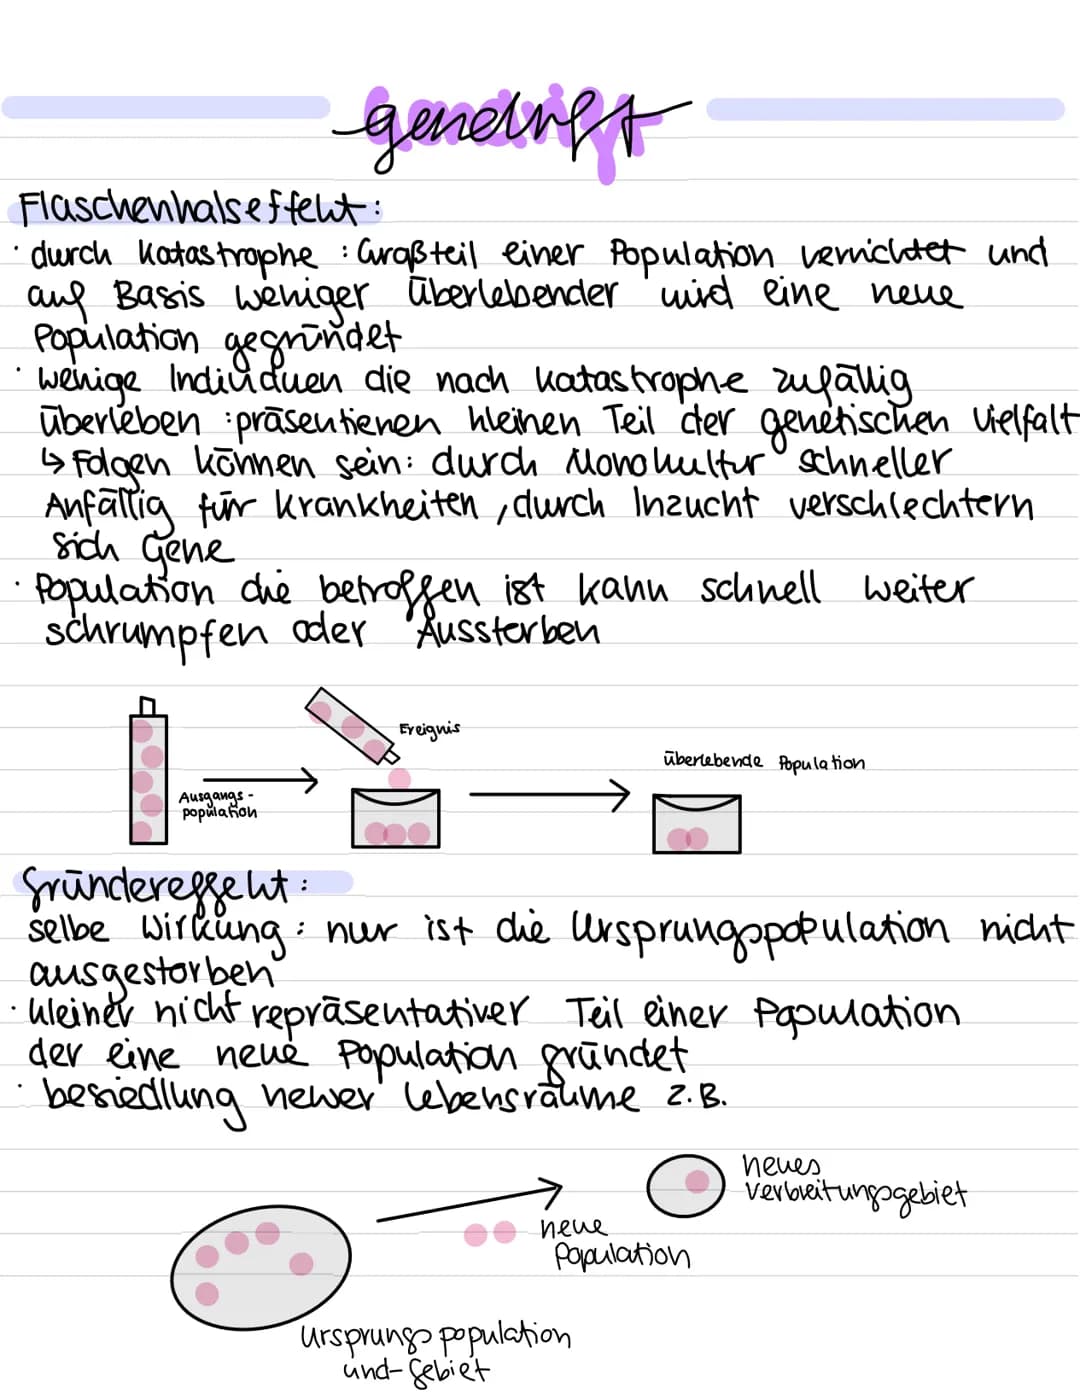 gendrift
Flaschenhalseffekt:
· durch Katastrophe : Großteil einer Population vernichtet und
auf Basis weniger Überlebender wird eine neue
Population gegründet
· wenige Individuen die nach Katastrophe zufällig
überleben : präsentieren kleinen Teil der genetischen Vielfalt
↳ Folgen können sein: durch Monokultur schneller
Anfällig für Krankheiten, durch Inzucht verschlechtern
sich Gene
· Population die betroffen ist kann schnell weiter
schrumpfen oder Aussterben
Ereignis
überlebende Population
Ausgangs-
population
Gründereffekt:
selbe Wirkung: nur ist die Ursprungspopulation nicht
ausgestorben
· kleiner nicht repräsentativer Teil einer Population
der eine neue Population gründet
· besiedlung neuer Lebensräume z.B.
neues
Verbreitungsgebiet
neue
Population
Ursprungspopulation
und-Gebiet